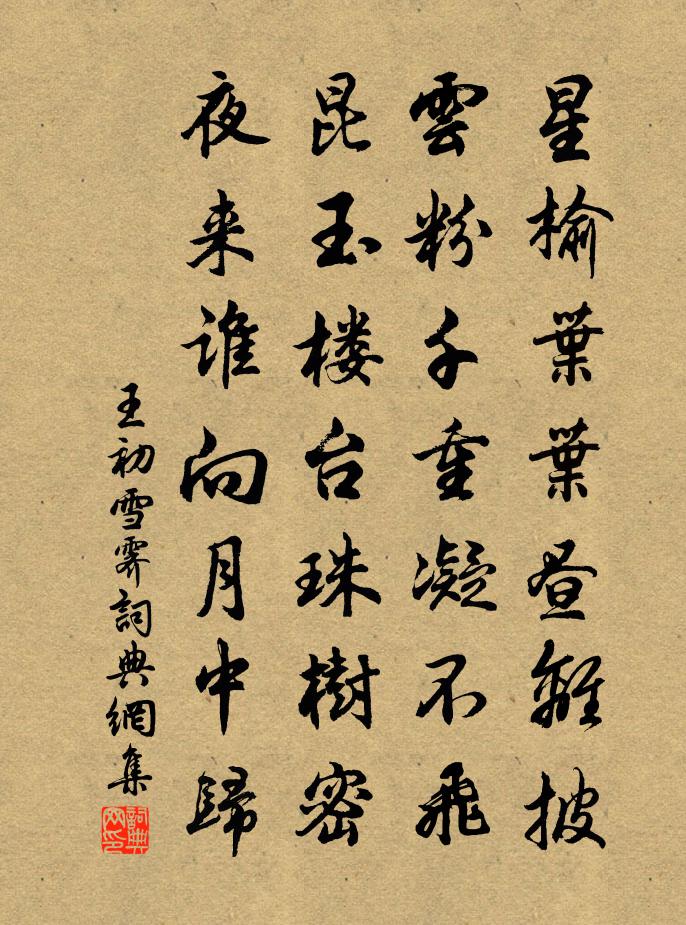 星榆葉葉昼離披
雲粉千重凝不飛
昆玉楼台珠樹密
夜来谁向月中歸
王初雪霽詞典網集
詞典网印